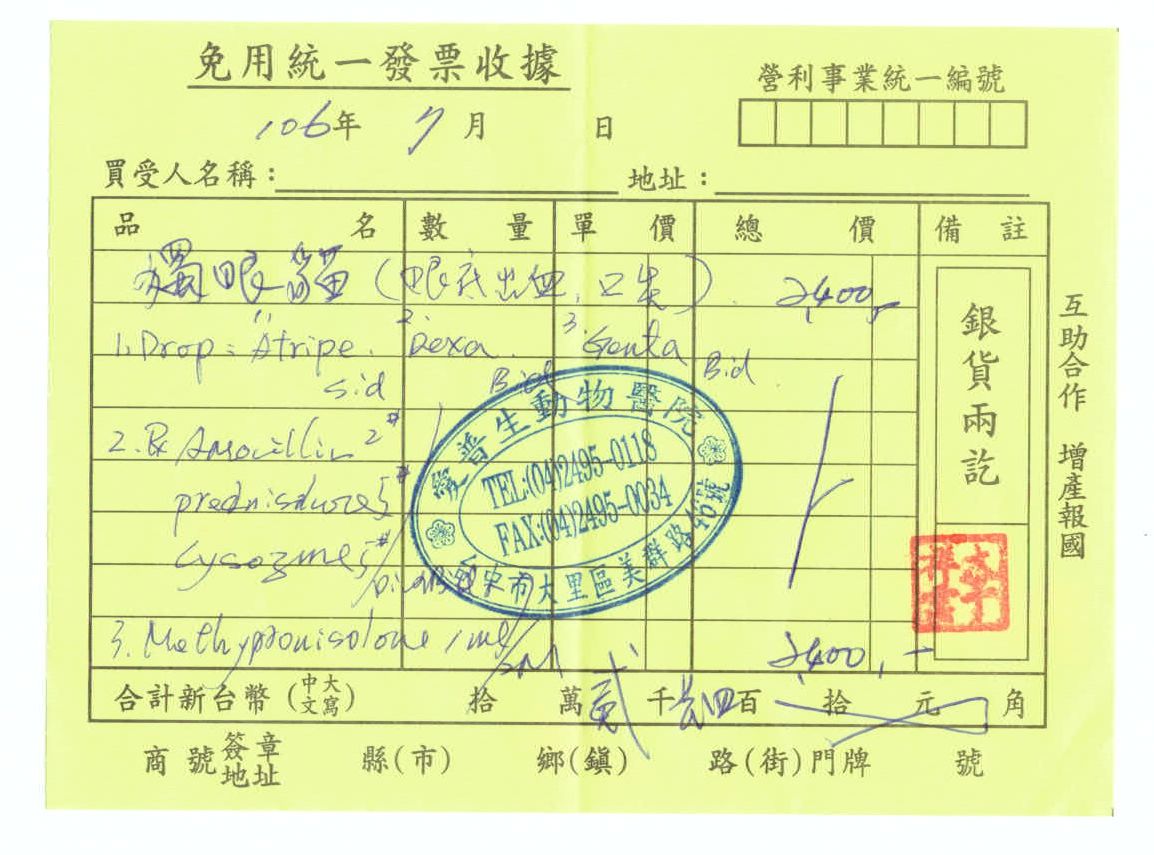 免用統一發票收據
營利事業統一編號
106年 7月 日
買受人名稱： 地址：
品名 數量 單價 總價 備註
獨眼貓(眼底出血, 口炎). 2,400,-
1. Drop: 1. Atripe. 2. Dexa. 3. Genta
sid Bid Bid.
2. Rx Amoxillin 2#
5#
Lysozme 5#/
3. Methypronisolone 1ml/
2,400,-
銀貨兩訖
互助合作 增產報國
生動物醫院
TEL:(04)2495-0118
FAX:(04)2495-0034
台中市大里區美群路40號
合計新台幣(中文大寫) 拾 萬 貳 千 四 百 拾 元 角
商號簽章地址 縣(市) 鄉(鎮) 路(街)門牌 號